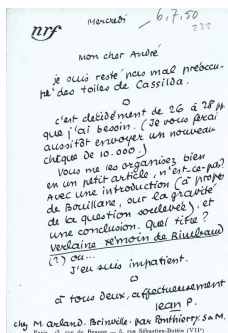 nrf
Mercredi
6.7.50
233
mon cher André
je suis resté pas mal préoccu-
pé des toiles de Cassilda.
o
c'est décidément de 26 à 28 pp.
que j'ai besoin. (Je vous ferai
aussitôt envoyer un nouveau
chèque de 10.000.)
Vous me les organisez bien
en un petit article, n'est-ce-pas?
Avec une introduction (à propos
de Bouillane, sur la gravité
de la question soulevée), et
une conclusion. Quel titre?
Verlaine témoin de Rimbaud
(?) ou...
J'en suis impatient.
o
à tous deux, affectueusement
Jean P.
chez M. Arland. Brinville. par Ponthierry. S&M.
Paris, 43, rue de Beaune — 5, rue Sébastien-Bottin (VIIe)